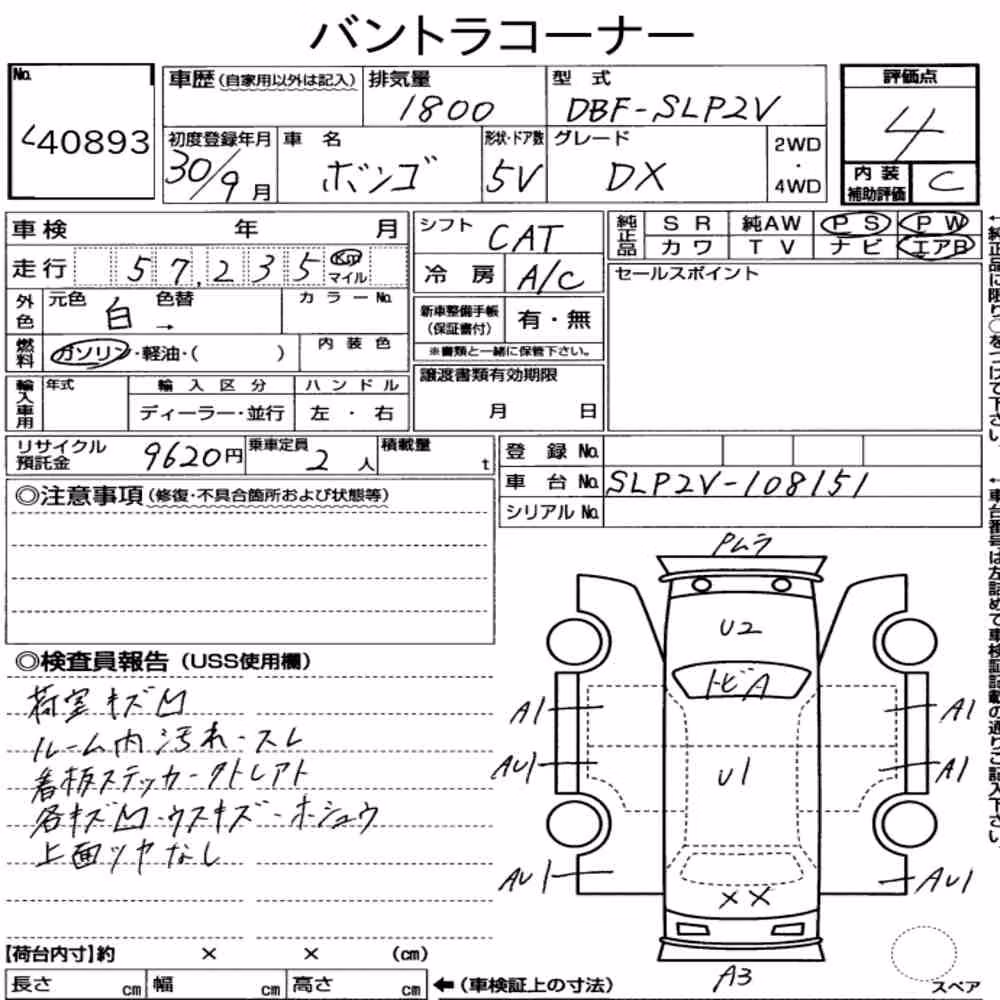 バントラコーナー
No.
40893
車歴 (自家用以外は記入)
排気量
1800
型 式
DBF-SLP2V
評価点
4
初度登録年月
30/9 月
車 名
ボンゴ
形状・ドア数
5V
グレード
DX
2WD
・
4WD
内 装
補助評価
C
車検 年 月
走行 57,235 Km
マイル
外色
元色
白
色替
→
カラーNo.
燃料
ガソリン・軽油・( )
内 装 色
輸入車用
年式
輸 入 区 分
ディーラー・並行
ハ ン ド ル
左 ・ 右
シフト
CAT
冷 房
A/C
新車整備手帳
(保証書付)
有・無
※書類と一緒に保管下さい。
譲渡書類有効期限
月 日
純正品
S R 純AW P S P W
カ ワ T V ナ ビ エアB
セールスポイント
←純正品に限り○をつけて下さい。
リサイクル
預託金
9620円
乗車定員
2 人
積載量
t
登 録 No.
車 台 No.
SLP2V-108151
シリアル No.
←車台番号は左詰めで車検証記載の通りご記入下さい。
◎注意事項 (修復・不具合箇所および状態等)
◎検査員報告 (USS使用欄)
荷室キズ凹
ルーム内汚れ・スレ
看板ステッカー・クトレアト
各キズ凹・ウスキズ・ホシュウ
上面ツヤなし
Pムラ
U2
トビA
A1
A1
AU1
U1
A1
AU1
XX
AU1
A3
スペア
【荷台内寸】約 × × (cm)
長さ cm 幅 cm 高さ cm ←(車検証上の寸法)